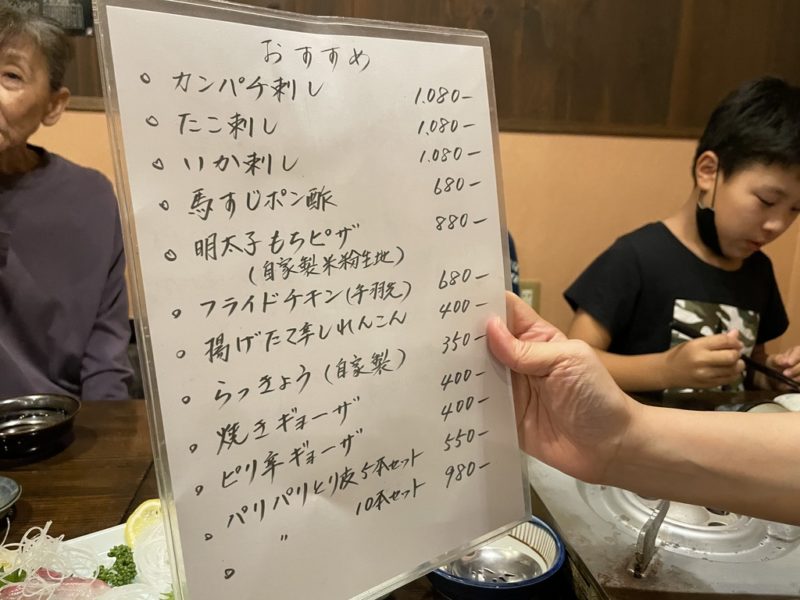 おすすめ
カンパチ刺し 1.080-
たこ刺し 1.080-
いか刺し 1.080-
馬すじポン酢 680-
明太子もちピザ 880-
(自家製米粉生地)
フライドチキン(手羽先) 680-
揚げたて辛しれんこん 400-
らっきょう(自家製) 350-
焼きギョーザ 400-
ピリ辛ギョーザ 400-
パリパリとり皮5本セット 550-
〃 10本セット 980-